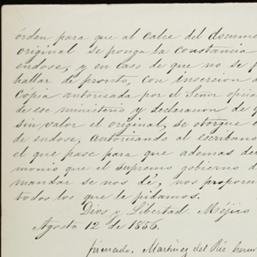 órden para que al calce del documen
original se ponga la constancia
endose, y en caso de que no se p
hallar de pronto, con insercion d
Copia autorizada por el Señor oficia
de ese ministerio y declaracion de q
sin valor el original, se otorgue
de endose, autorizando al escribano
el que pase para que ademas del
monio que el supremo gobierno d
mandar se nos de, nos proporc
todos los que le pidamos.
Dios y Libertad. Méjico
Agosto 12 de 1856.
firmado. Martinez del Rio herm